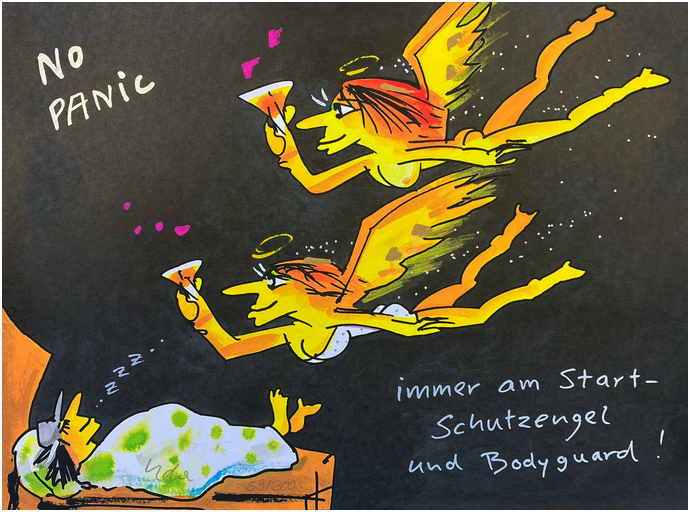 NO
PANiC
zzz..
immer am Start-
Schutzengel
und Bodyguard!
53/300